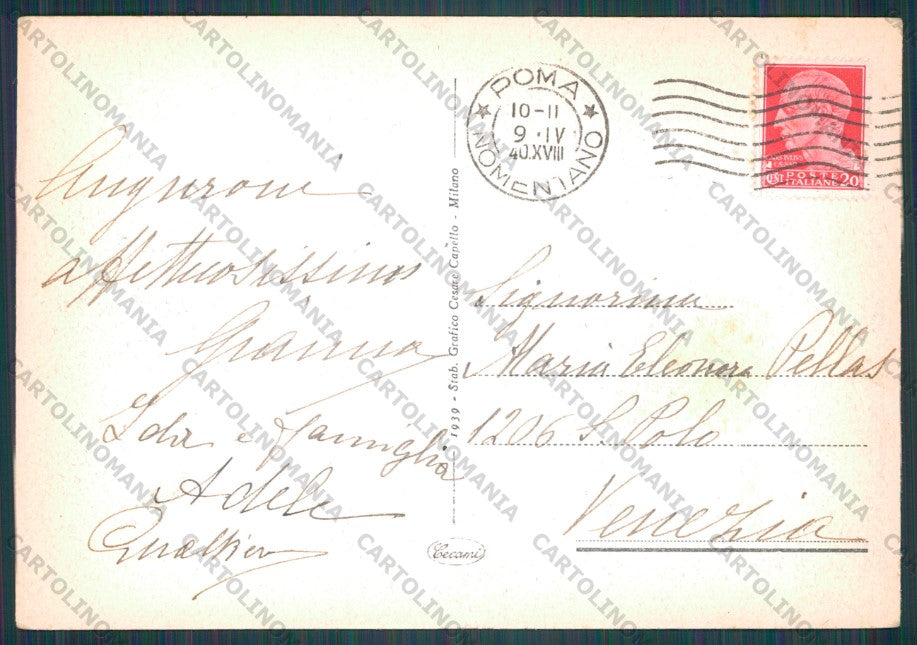 Auguroni
affettuosissimi
Gianna
Ida e famiglia
Adele
1939 - Stab. Grafico Cesare Capello - Milano
Cecami
ROMA
NOMENTANO
10-11
9 · IV
40.XVIII
POSTE
ITALIANE
CENT 20
Signorina
Maria Eleonora Pellas
1206 S. Polo
Venezia
CARTOLINOMANIA